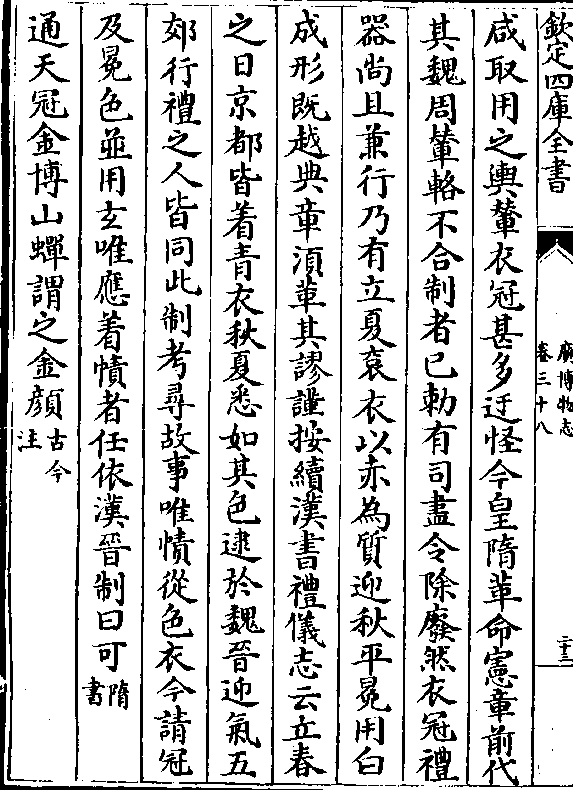 欽定四庫全書
廣博物志
卷三十八
二十三
咸取用之輿輦衣冠甚多迂怪今皇隋革命憲章前代
其魏周輦輅不合制者已勅有司盡令除廢然衣冠禮
器尚且兼行乃有立夏衮衣以赤為質迎秋平冕用白
成形既越典章湏革其謬謹按續漢書禮儀志云立春
之日京都皆着青衣秋夏悉如其色逮於魏晉迎氣五
郊行禮之人皆同此制考尋故事唯幘從色衣今請冠
及冕色並用玄唯應着幘者任依漢晉制曰可隋書
通天冠金博山蟬謂之金顔古今注